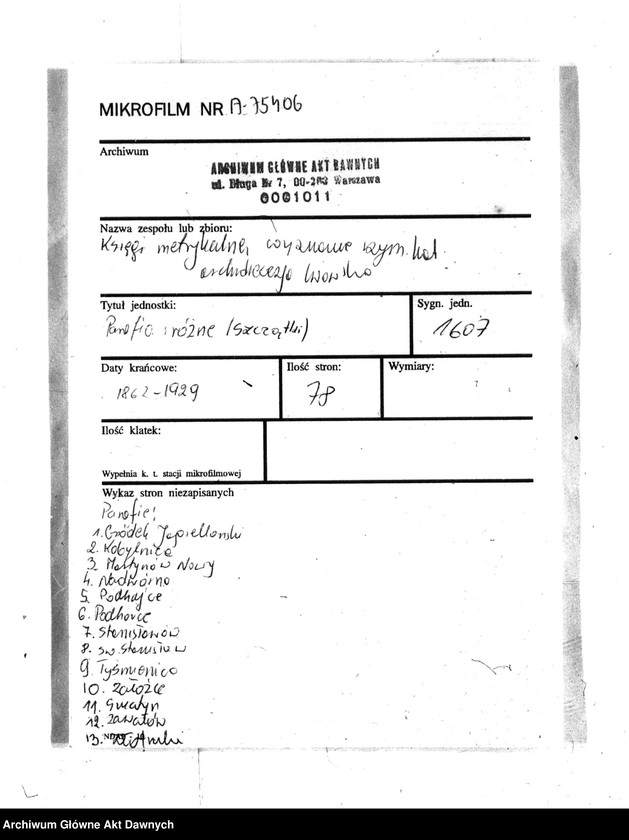 MIKROFILM NR A-75406
Archiwum
ARCHIWUM GŁÓWNE AKT DAWNYCH
ul. Długa Nr 7, 00-263 Warszawa
0001011
Nazwa zespołu lub zbioru:
Księgi metrykalne, wyznanie rzym. kat.
archidiecezja lwowska
Tytuł jednostki:
Parafie różne (szczątki)
Sygn. jedn.
1607
Daty krańcowe:
1862-1929
Ilość stron:
78
Wymiary:
Ilość klatek:
Wypełnia k. t. stacji mikrofilmowej
Wykaz stron niezapisanych
Parafie:
1. Gródek Jagielloński
2. Kobylnica
3. Martynów Nowy
4. Nadwórna
5. Podhajce
6. Podhorce
7. Stanisławów
8. św. Stanisław
9. Tyśmienica
10. Załoźce
11. Śniatyn
12. Zawałów
13.
Archiwum Główne Akt Dawnych